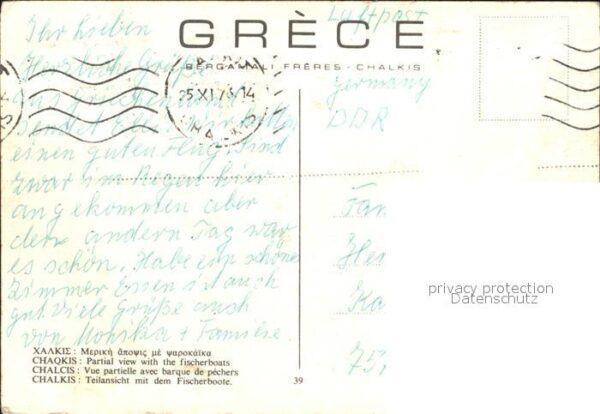 Ihr Lieben
GRÈCE
BERGAMALI FRÈRES - CHALKIS
Herzliche Grüße
aus Griechenland
sendet Wir hatten
einen guten Flug. Sind
zwar im Regen hier
angekommen aber
den andern Tag war
es schön. Habe ein schönes
Zimmer Essen ist auch
gut. Viele Grüße auch
von Monika + Familie.
Luftpost
Germany
DDR
Fam
Ka
75
25 XI 14
privacy protection
Datenschutz
ΧΑΛΚΙΣ : Μερική ἄποψις μέ ψαροκάϊκα
CHAQKIS : Partial view with the fischerboats
CHALCIS : Vue partielle avec barque de péchers
CHALKIS : Teilansicht mit dem Fischerboote.
39